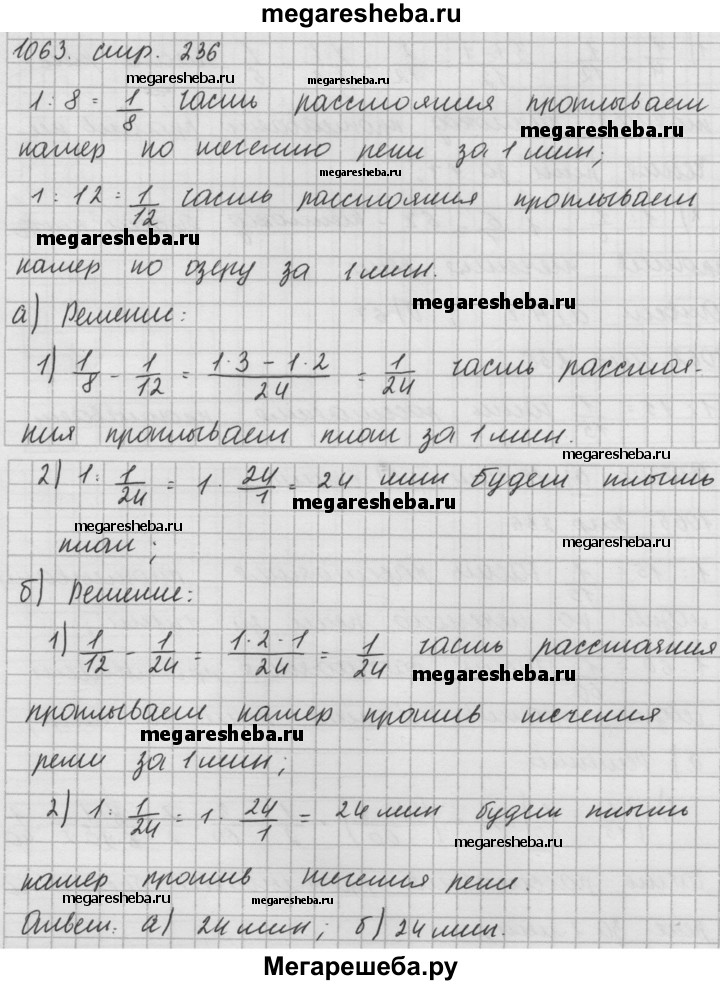 megaresheba.ru
1063. стр. 236
megaresheba.ru megaresheba.ru
1 : 8 = 1/8 часть расстояния проплывает
megaresheba.ru
катер по течению реки за 1 мин;
megaresheba.ru
1 : 12 = 1/12 часть расстояния проплывает
megaresheba.ru
катер по озеру за 1 мин.
megaresheba.ru
а) Решение:
1) 1/8 - 1/12 = (1·3 - 1·2)/24 = 1/24 часть расстоя-
ния проплывает плот за 1 мин.
megaresheba.ru
2) 1 : 1/24 = 1 · 24/1 = 24 мин будет плыть
megaresheba.ru
плот;
megaresheba.ru megaresheba.ru
б) Решение:
1) 1/12 - 1/24 = (1·2-1)/24 = 1/24 часть расстояния
megaresheba.ru
проплывает катер против течения
megaresheba.ru
реки за 1 мин;
2) 1 : 1/24 = 1 · 24/1 = 24 мин будет плыть
megaresheba.ru
катер против течения реки.
megaresheba.ru megaresheba.ru
Ответ: а) 24 мин; б) 24 мин.
Мегарешеба.ру